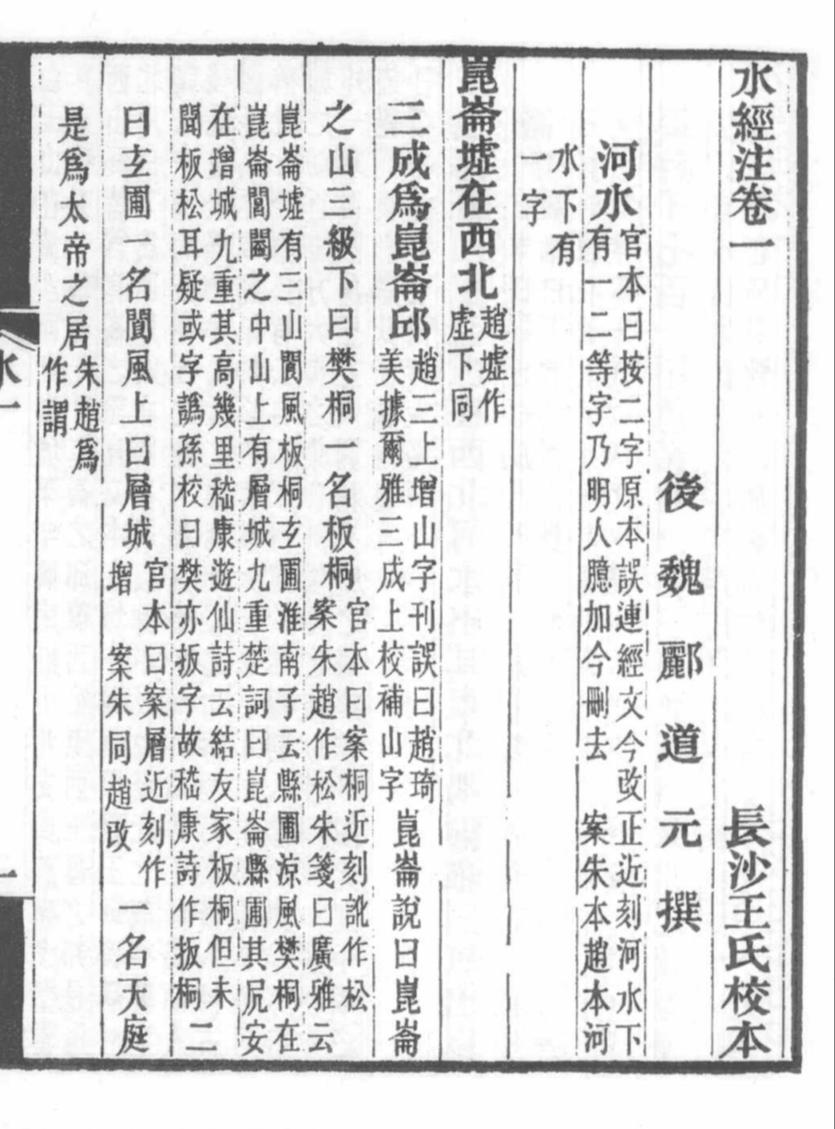 水經注卷一 長沙王氏校本
後魏酈道元撰
河水官本曰按二字原本誤連經文今改正近刻河水下有一二等字乃明人臆加今刪去 案朱本趙本河
水下有一字
崑崙墟在西北趙墟作虛下同
三成爲崑崙邱趙三上增山字刊誤曰趙琦美據爾雅三成上校補山字崑崙說曰崑崙
之山三級下曰樊桐 名板桐官本曰案桐近刻訛作松 案朱趙作松朱箋曰廣雅云
崑崙墟有三山閬風板桐玄圃淮南子云縣圃涼風樊桐在崑崙閶闔之中山上有層城九重楚詞曰崑崙縣圃其尻安
在增城九重其高幾里嵇康遊仙詩云結友家板桐但未聞板松耳疑或字譌孫校曰樊亦扳字故嵇康詩作扳桐二
曰玄圃一名閬風上曰層城官本曰案層近刻作增 案朱同趙改一名天庭
是爲太帝之居朱趙爲作謂
水一
一